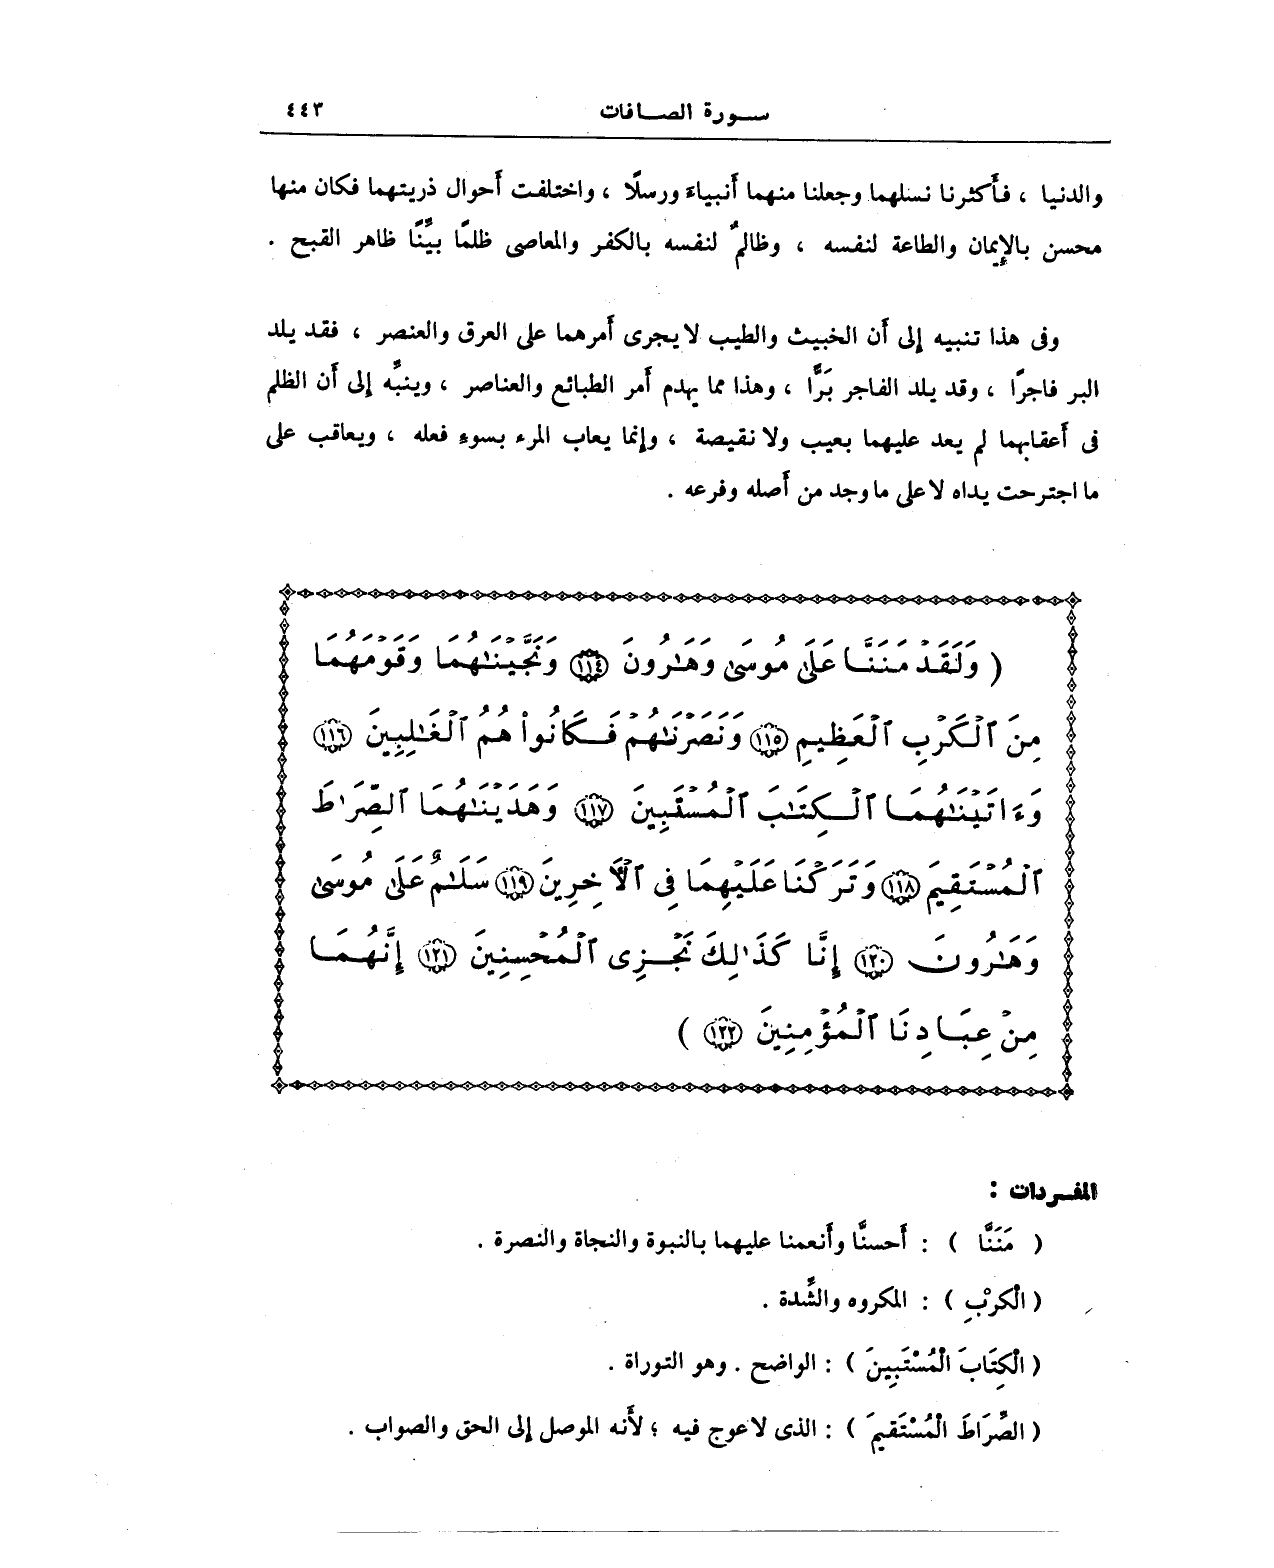 سورة الصافات ٤٤٣
والدنيا ، فأكثرنا نسلهما وجعلنا منهما أنبياءَ ورسلًا ، واختلفت أحوال ذريتهما فكان منها
محسن بالإيمان والطاعة لنفسه ، وظالمٌ لنفسه بالكفر والمعاصى ظلمًا بيِّنًا ظاهر القبح .
وفى هذا تنبيه إلى أن الخبيث والطيب لا يجرى أمرهما على العرق والعنصر ، فقد يلد
البر فاجرًا ، وقد يلد الفاجر بَرًّا ، وهذا مما يهدم أمر الطبائع والعناصر ، وينبِّه إلى أن الظلم
فى أعقابهما لم يعد عليهما بعيب ولا نقيصة ، وإنما يعاب المرء بسوءِ فعله ، ويعاقب على
ما اجترحت يداه لا على ما وجد من أصله وفرعه .
( وَلَقَدْ مَنَنَّا عَلَىٰ مُوسَىٰ وَهَٰرُونَ ﴿١١٤﴾ وَنَجَّيْنَٰهُمَا وَقَوْمَهُمَا
مِنَ ٱلْكَرْبِ ٱلْعَظِيمِ ﴿١١٥﴾ وَنَصَرْنَٰهُمْ فَكَانُوا۟ هُمُ ٱلْغَٰلِبِينَ ﴿١١٦﴾
وَءَاتَيْنَٰهُمَا ٱلْكِتَٰبَ ٱلْمُسْتَبِينَ ﴿١١٧﴾ وَهَدَيْنَٰهُمَا ٱلصِّرَٰطَ
ٱلْمُسْتَقِيمَ ﴿١١٨﴾ وَتَرَكْنَا عَلَيْهِمَا فِى ٱلْأَخِرِينَ ﴿١١٩﴾ سَلَٰمٌ عَلَىٰ مُوسَىٰ
وَهَٰرُونَ ﴿١٢٠﴾ إِنَّا كَذَٰلِكَ نَجْزِى ٱلْمُحْسِنِينَ ﴿١٢١﴾ إِنَّهُمَا
مِنْ عِبَادِنَا ٱلْمُؤْمِنِينَ ﴿١٢٢﴾ )
المفردات :
( مَنَنَّا ) : أحسنَّا وأنعمنا عليهما بالنبوة والنجاة والنصرة .
( الْكَرْبِ ) : المكروه والشِّدة .
( الْكِتَابَ الْمُسْتَبِينَ ) : الواضح . وهو التوراة .
( الصِّرَاطَ الْمُسْتَقِيمَ ) : الذى لا عوج فيه ؛ لأنه الموصل إلى الحق والصواب .